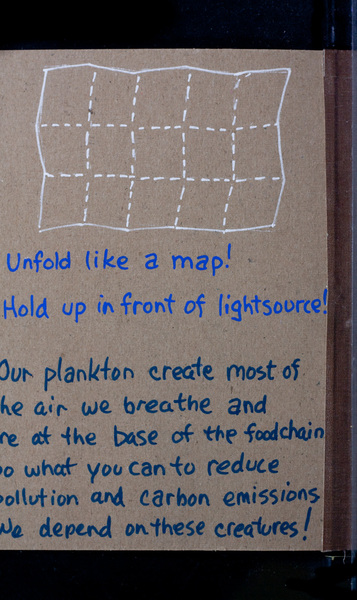 Unfold like a map!
Hold up in front of lightsource!
Our plankton create most of
he air we breathe and
re at the base of the foodchain
o what you can to reduce
pollution and carbon emissions
We depend on these creatures!